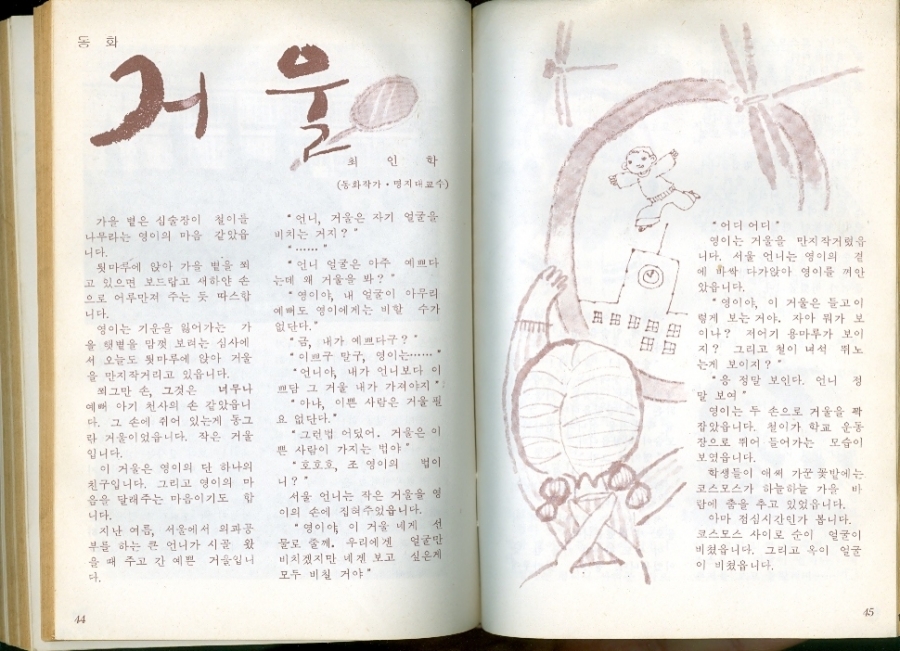 동 화
거 울
최 인 학
(동화작가·명지대교수)
가을 볕은 심술장이 철이를
나무라는 영이의 마음 같았읍
니다.
툇마루에 앉아 가을 볕을 쬐
고 있으면 보드랍고 새하얀 손
으로 어루만져 주는 듯 따스합
니다.
영이는 기운을 잃어가는 가
을 햇볕을 맘껏 보려는 심사에
서 오늘도 툇마루에 앉아 거울
을 만지작거리고 있읍니다.
쬐그만 손, 그것은 너무나
예뻐 아기 천사의 손 같았읍니
다. 그 손에 쥐어 있는게 동그
란 거울이었읍니다. 작은 거울
입니다.
이 거울은 영이의 단 하나의
친구입니다. 그리고 영이의 마
음을 달래주는 마음이기도 합
니다.
지난 여름, 서울에서 의과공
부를 하는 큰 언니가 시골 왔
을 때 주고 간 예쁜 거울입니
다.
"언니, 거울은 자기 얼굴을
비치는 거지?"
"……"
"언니 얼굴은 아주 예쁘다
는데 왜 거울을 봐?"
"영이야, 내 얼굴이 아무리
예뻐도 영이에게는 비할 수가
없단다."
"금, 내가 예쁘다구?"
"이쁘구 말구, 영이는……"
"언니야, 내가 언니보다 이
쁘담 그 거울 내가 가져야지"
"아냐, 이쁜 사람은 거울 필
요 없단다."
"그런법 어딨어. 거울은 이
쁜 사람이 가지는 법야"
"호호호, 조 영이의 법이
니?"
서울 언니는 작은 거울을 영
이의 손에 집혀주었읍니다.
"영이야, 이 거울 네게 선
물로 줄께. 우리에겐 얼굴만
비치겠지만 네겐 보고 싶은게
모두 비칠 거야"
44
"어디 어디"
영이는 거울을 만지작거렸읍
니다. 서울 언니는 영이의 곁
에 바싹 다가앉아 영이를 껴안
았읍니다.
"영이야, 이 거울은 들고 이
렇게 보는 거야. 자아 뭐가 보
이나? 저어기 용마루가 보이
지? 그리고 철이 녀석 뛰노
는게 보이지?"
"응 정말 보인다. 언니 정
말 보여"
영이는 두 손으로 거울을 꽉
잡았읍니다. 철이가 학교 운동
장으로 뛰어 들어가는 모습이
보였읍니다.
학생들이 애써 가꾼 꽃밭에는
코스모스가 하늘하늘 가을 바
람에 춤을 추고 있었읍니다.
아마 점심시간인가 봅니다.
코스모스 사이로 순이 얼굴이
비쳤읍니다. 그리고 옥이 얼굴
이 비쳤읍니다.
45